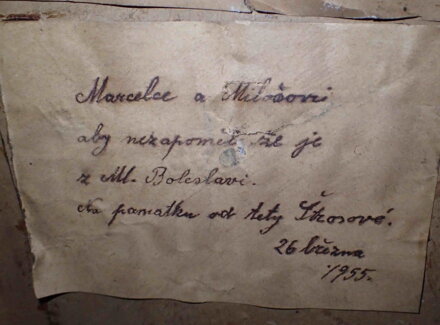 Marcelce a Milošovi
aby nezapoměl že je
z Ml. Boleslavi.
Na pamatku od tety Šrosové.
26 března
1955.